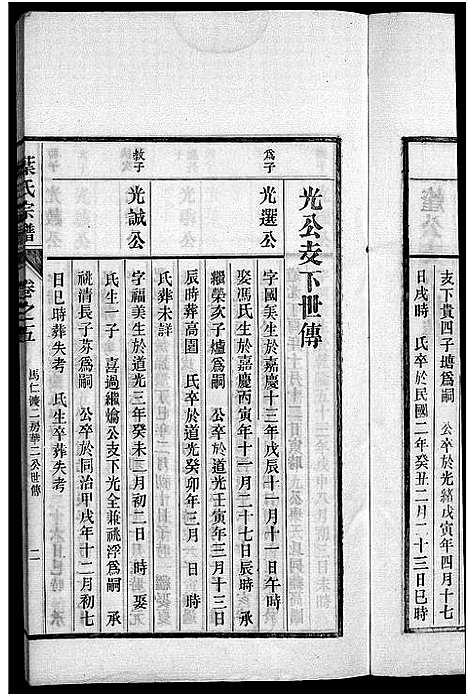 支下貴四子𤏡爲嗣　公卒於光緒戊寅年四月十七
日戌時　氏卒於民國二年癸丑二月二十三日巳時
光公支下世傳
爲子
光選公
字國美生於嘉慶十三年戊辰十一月十一日午時
娶馮氏生於嘉慶丙寅年十一月二十七日辰時　承
繼榮亥子爐爲嗣　公卒於道光壬寅年三月十三日
辰時葬高園　氏卒於道光癸卯年三月　日　時
氏葬未詳
教子
光誠公
字福美生於道光三年癸未三月初二日時　娶
氏生一子　喜過繼爚公支下光全兼祧浮爲嗣　承
祧清長子芬爲嗣　公卒於同治甲戌年十二月初七
日巳時葬失考　氏生卒葬失考
葉氏宗譜
卷之五
馬仁渡二房華二公世傳
二